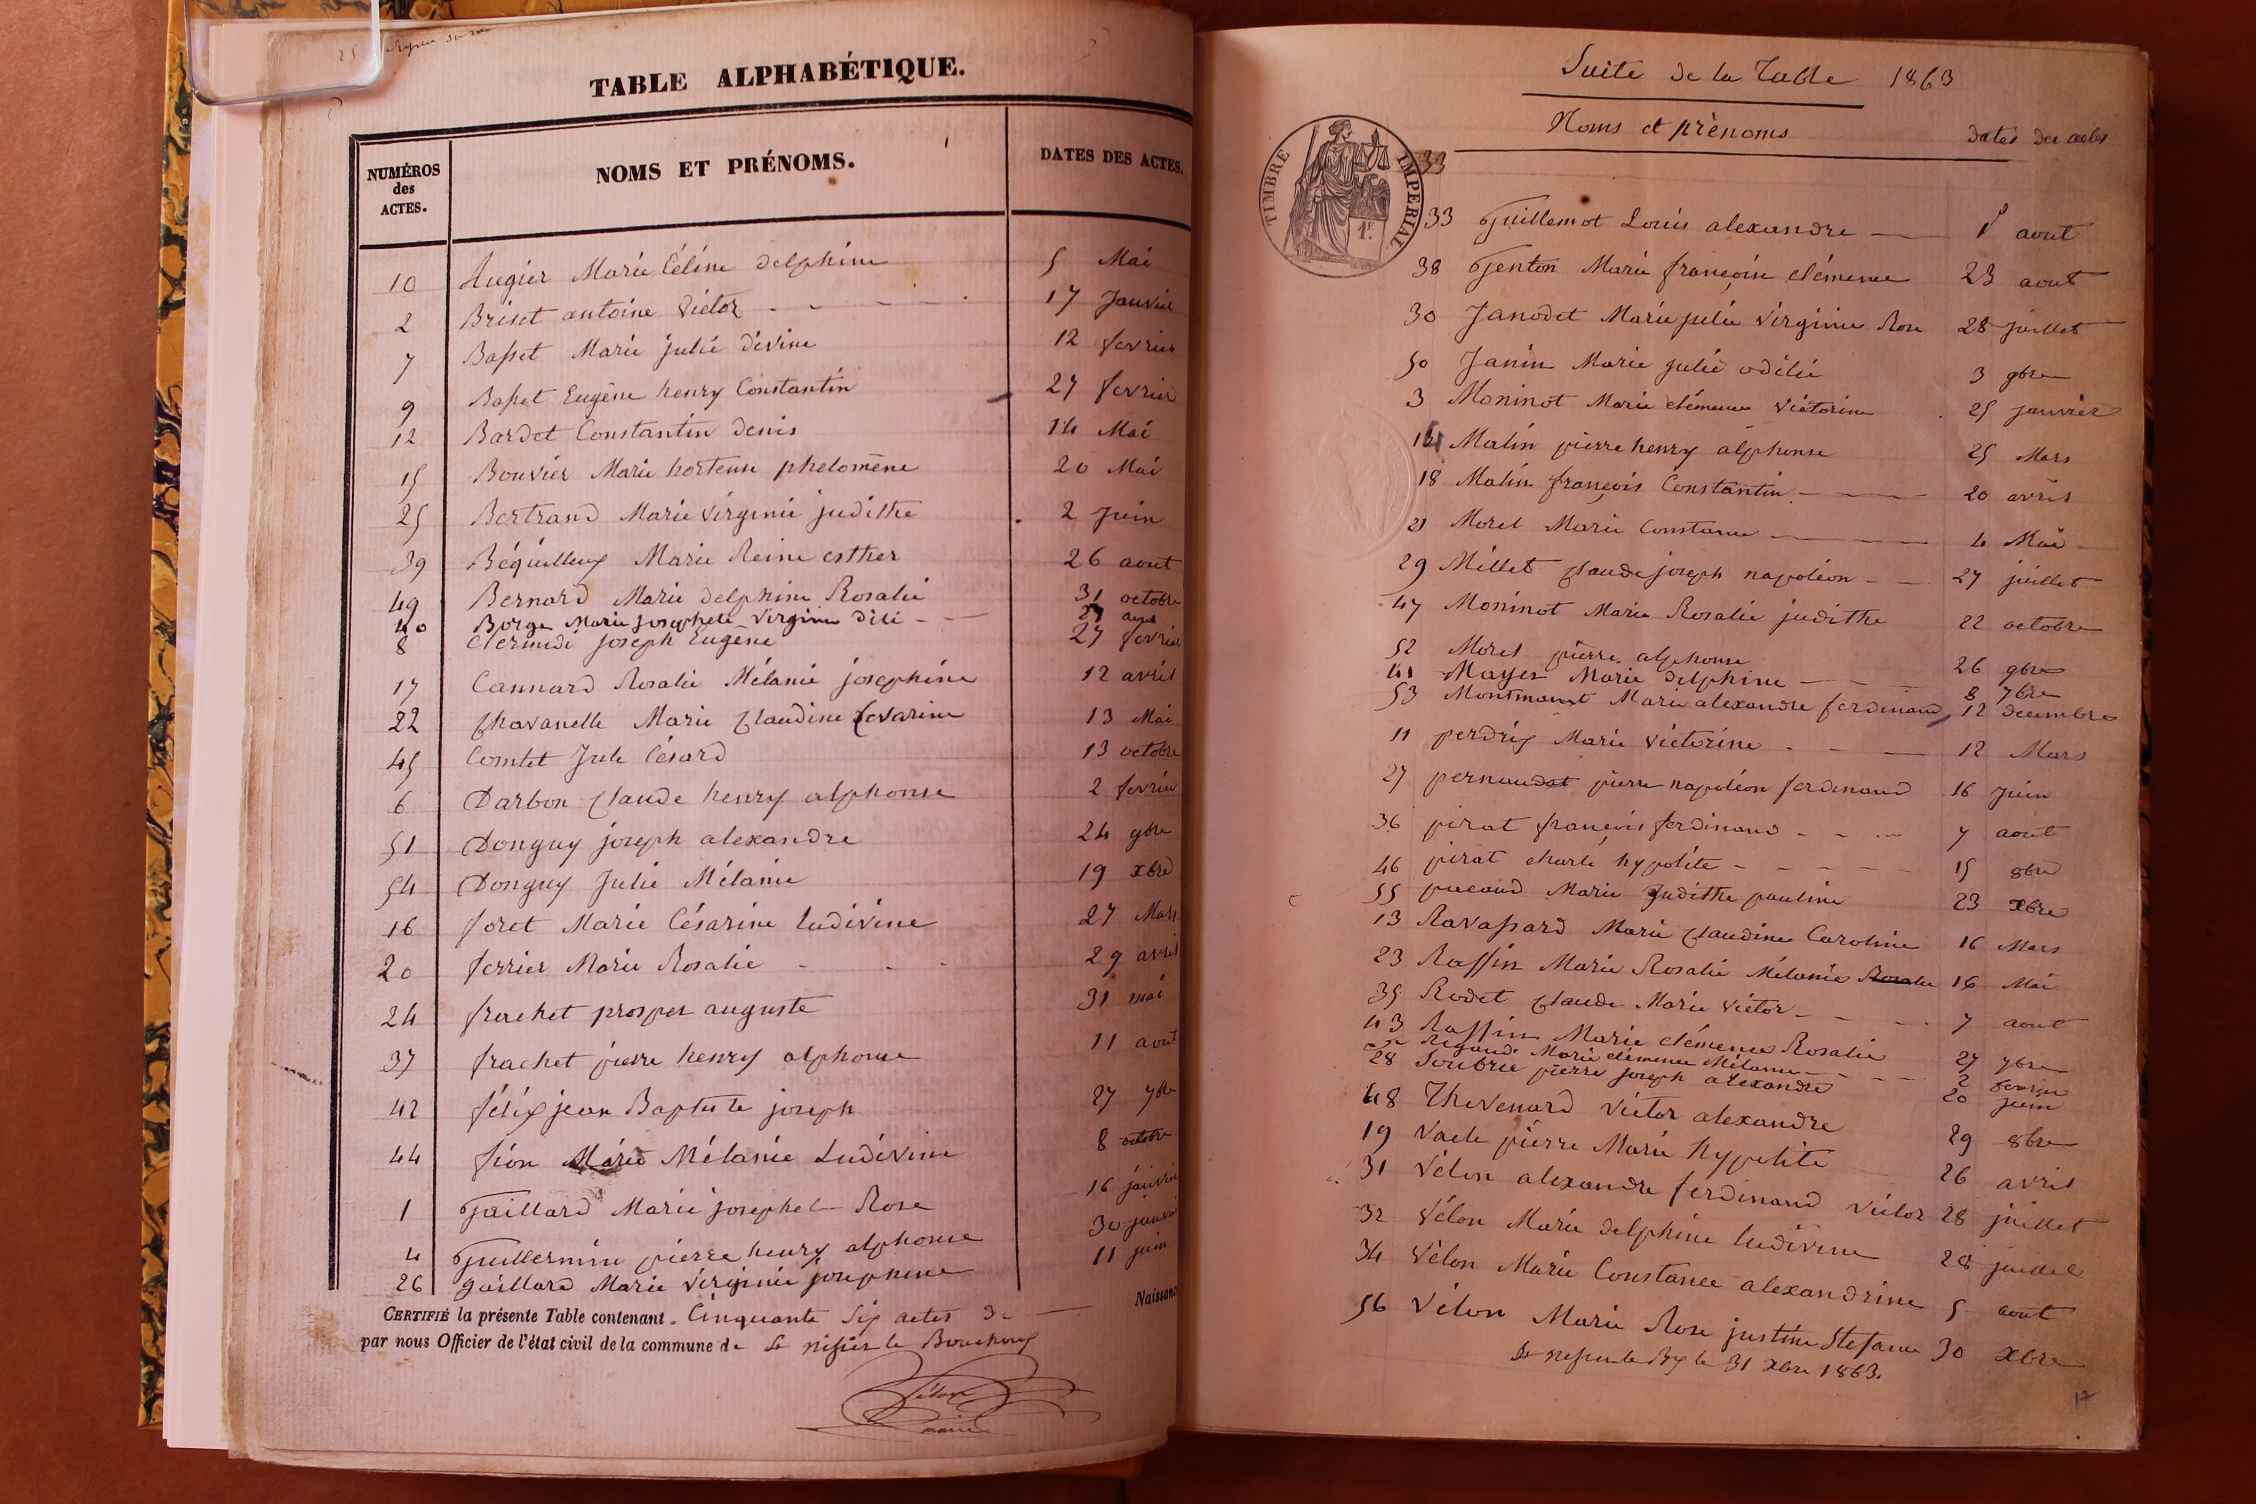 TABLE ALPHABÉTIQUE.
NUMÉROS des ACTES. NOMS ET PRÉNOMS. DATES DES ACTES.
10 Augier Marie Céline delphine 5 Mai
2 Briset antoine Victor 17 Janvier
7 Basset Marie julie divine 12 fevrier
9 Basset Eugène henry Constantin 27 fevrier
12 Bardet Constantin denis 14 Mai
15 Bouvier Marie hortense phelomène 20 Mai
25 Bertrand Marie virginie judithe 2 Juin
39 Béquilleux Marie Reine esther 26 aout
49 Bernard Marie delphine Rosalie 31 octobre
40 Borge Marie josephete Virginie
8 Clermidi joseph Eugene 27 fevrier
17 Cannard Rosalie Mélanie joséphine 12 avril
22 Chavanelle Marie Claudine Cevarine 13 Mai
45 Comtet Jule César 13 octobre
6 Darbon Claude henry alphonse 2 fevrier
51 Donguy joseph alexandre 24 9bre
54 Donguy Julie Mélanie 19 xbre
16 foret Marie Césarine ludivine 27 Mars
20 ferrier Marie Rosalie 29 avril
24 frachet prosper auguste 31 mai
37 frachet pierre henry alphonse 11 aout
42 félix jean Baptiste joseph 27 7bre
44 fion Marie Mélanie Ludivine 8 octobre
1 Gaillard Marie josephete Rose 16 janvier
4 Guillermin pierre henry alphonse 30 janvier
26 gaillard Marie Virginie josephine 11 juin
CERTIFIÉ la présente Table contenant Cinquante Six actes de Naissance
par nous Officier de l'état civil de la commune de St nisier le Bouchoux
Vélon
maire
Suite de la Table 1863
Noms et prénoms dates des actes
TIMBRE IMPERIAL
1F.
33
33 Guillemot Louis alexandre 1er aout
38 Genton Marie françoise clémence 23 aout
30 Janodet Marie julie Virginie Rose 28 juillet
50 Janin Marie julie odélie 3 9bre
3 Moninot Marie clémence Victorine 25 janvier
14 Malin pierre henry alphonse 25 Mars
18 Malin françois Constantin 20 avril
21 Morel Marie Constance 4 Mai
29 Millet Claude joseph napoléon 27 juillet
47 Moninot Marie Rosalie judithe 22 octobre
52 Morel pierre alphonse 26 9bre
41 Mayer Marie delphine 8 7bre
53 Montmount Marie alexandre ferdinand 12 decembre
11 perdrix Marie Victorine 12 Mars
27 pernaudat pierre napoléon ferdinand 16 Juin
36 pirat françois ferdinand 7 aout
46 pirat charle hypolite 15 8bre
55 pucaud Marie Judithe pauline 23 xbre
13 Ravassard Marie Claudine Caroline 16 Mars
23 Raffin Marie Rosalie Mélanie Rosalie 16 Mai
35 Rodet Claude Marie Victor 7 aout
43 Raffin Marie clémence Rosalie 27 7bre
5 Rigaud Marie clémence Mélanie 2 fevrier
28 Soubrie pierre joseph alexandre 20 juin
48 Thevenard Victor alexandre 29 8bre
19 Vacle pierre Marie hypolite 26 avril
31 Vélon alexandre ferdinand Victor 28 juillet
32 Vélon Marie delphine ludivine 28 juillet
34 Vélon Marie Constance alexandrine 5 aout
56 Vélon Marie Rose justine Stefanie 30 xbre
St nisier le Bx le 31 xbre 1863.
17